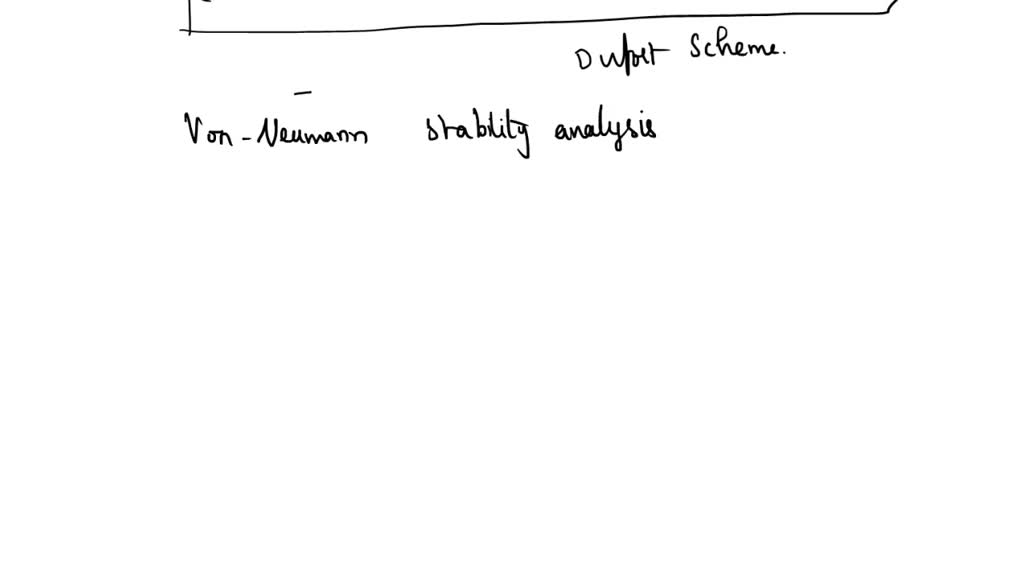 Dufort Scheme.
Von-Neumann stability analysis